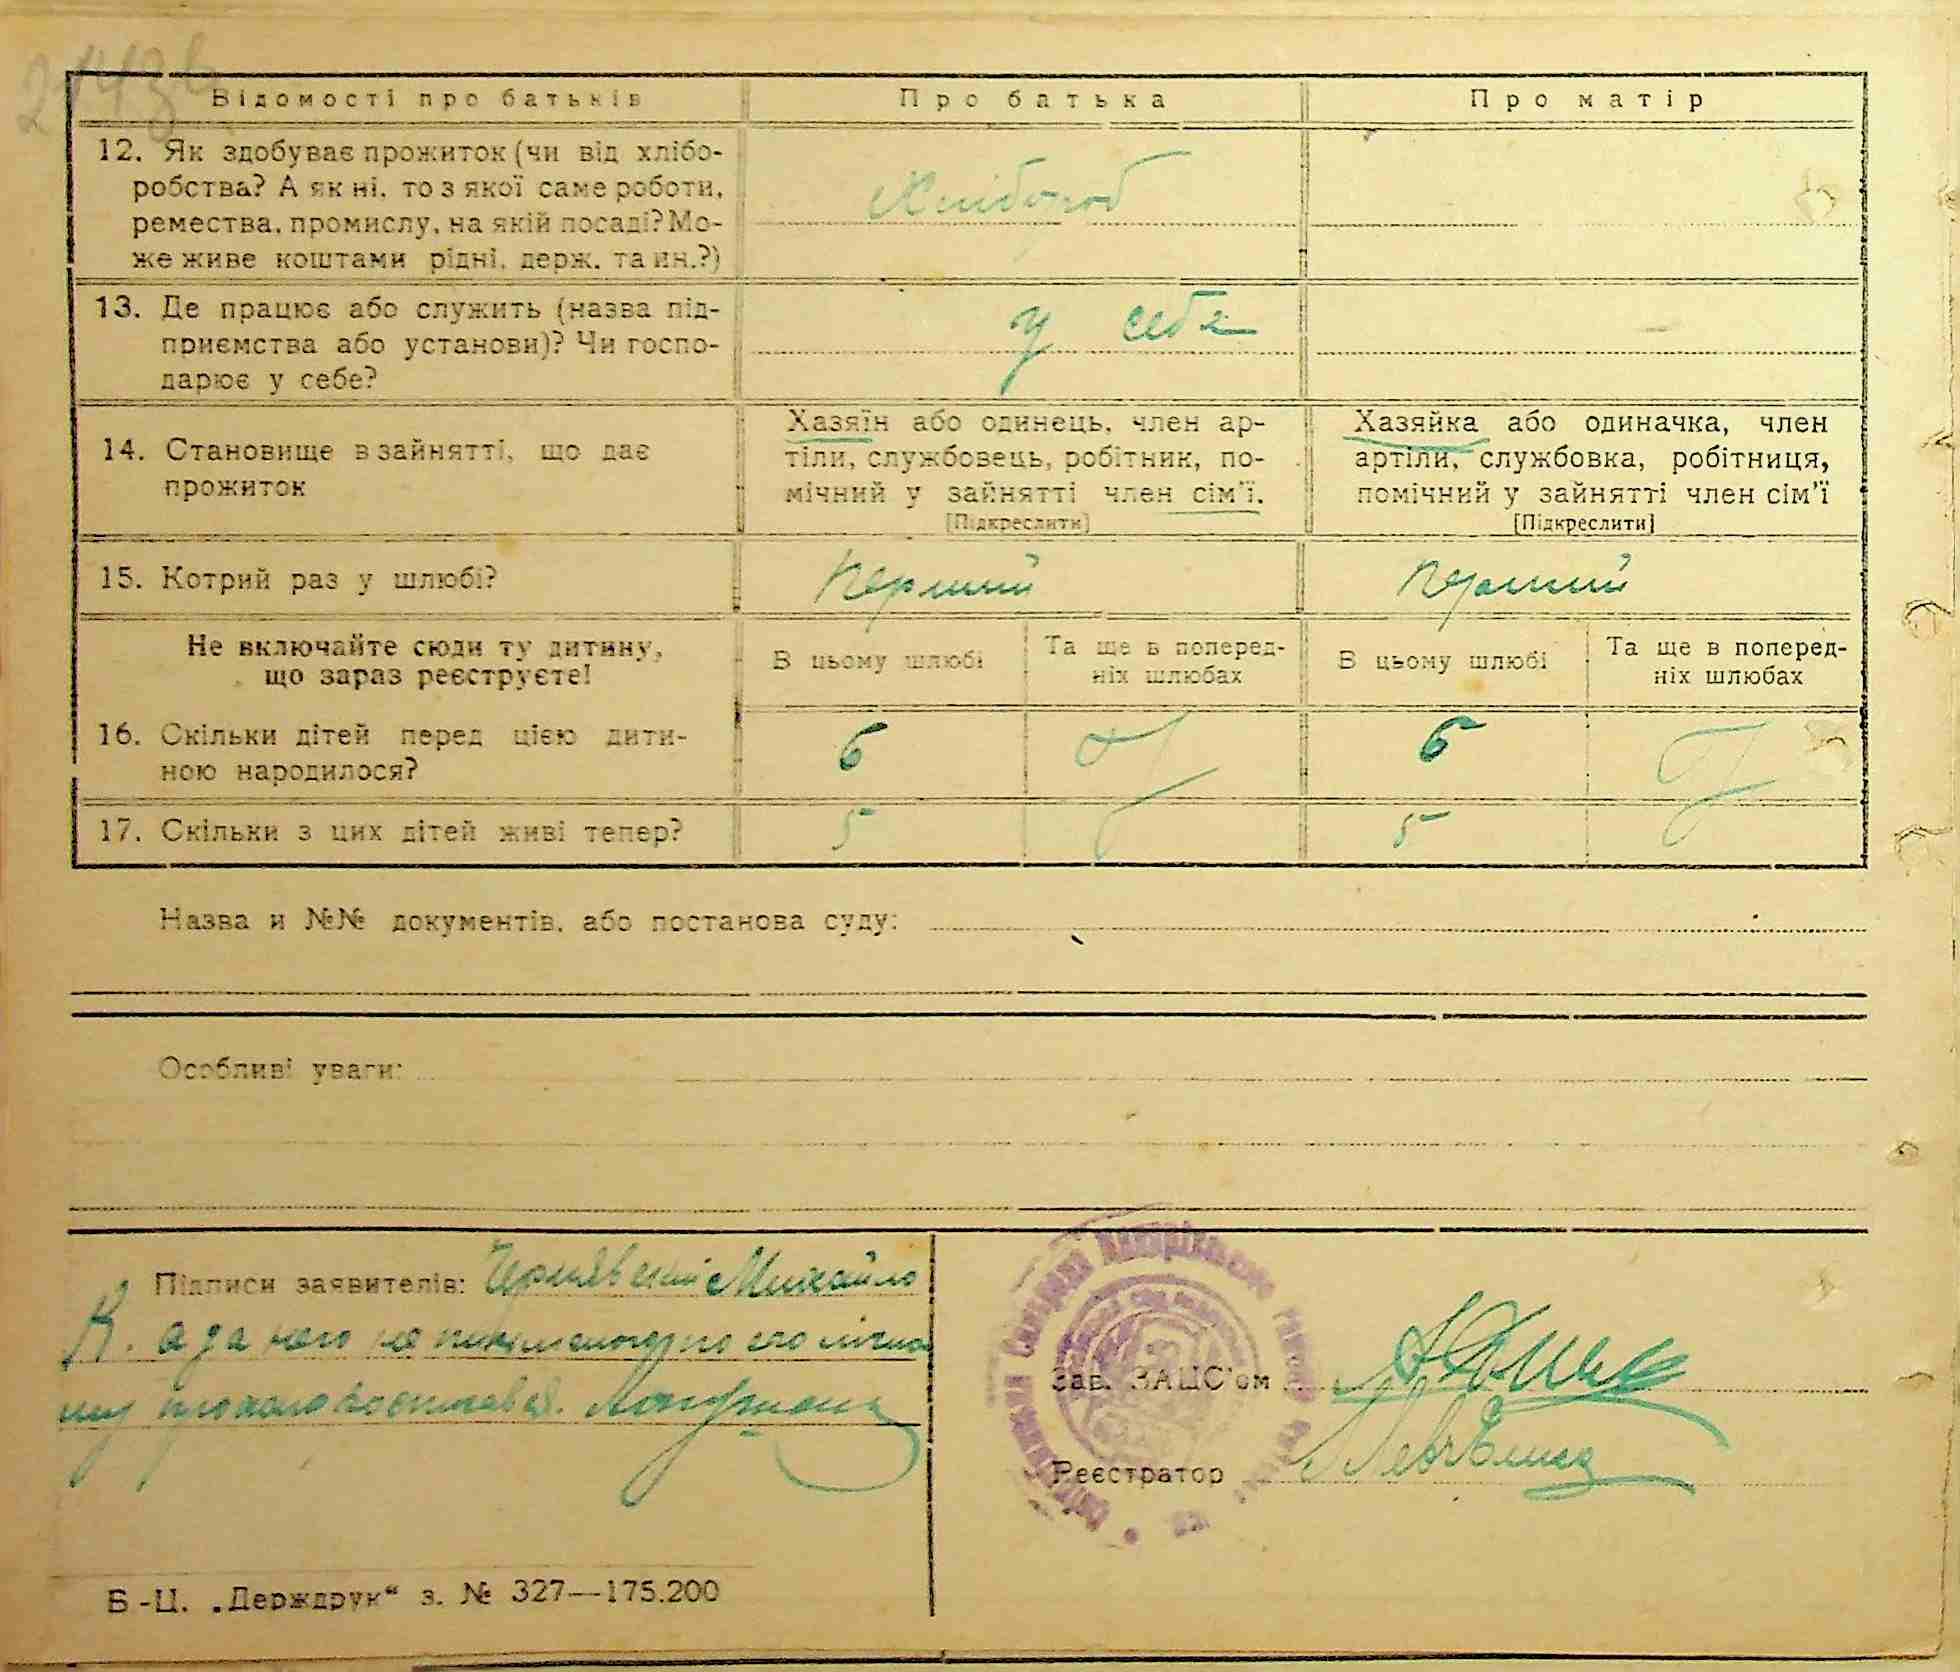 Відомості про батьків
Про батька
Про матір
12. Як здобуває прожиток (чи від хлібо-
робства? А як ні, то з якої саме роботи,
ремества, промислу, на якій посаді? Мо-
же живе коштами рідні, держ. та ин.?)
Хлібороб
13. Де працює або служить (назва під-
приємства або установи)? Чи госпо-
дарює у себе?
у себе
14. Становище в зайнятті, що дає
прожиток
Хазяїн або одинець, член ар-
тіли, службовець, робітник, по-
мічний у зайнятті член сім'ї.
[Підкреслити]
Хазяйка або одиначка, член
артіли, службовка, робітниця,
помічний у зайнятті член сім'ї
[Підкреслити]
15. Котрий раз у шлюбі?
перший
перший
Не включайте сюди ту дитину,
що зараз реєструєте!
В цьому шлюбі
Та ще в поперед-
ніх шлюбах
В цьому шлюбі
Та ще в поперед-
ніх шлюбах
16. Скільки дітей перед цією дити-
ною народилося?
6
6
17. Скільки з цих дітей живі тепер?
5
5
Назва и №№ документів, або постанова суду:
Особливі уваги:
Підписи заявителів: Чернявский Михайло
К. а за него
Зав. ЗАЦС'ом
Реєстратор
Б-Ц. „Держдрук“ з. № 327—175.200